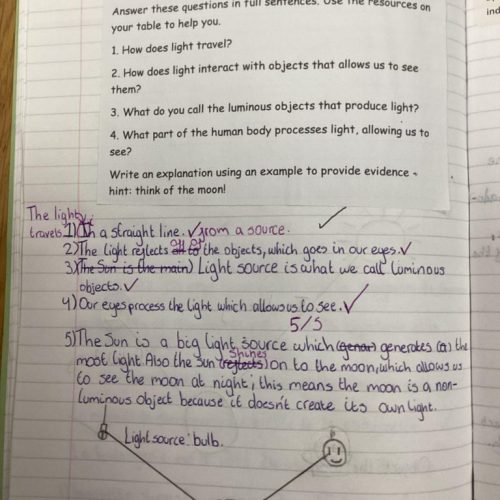 Answer these questions in full sentences. Use the resources on
your table to help you.
1. How does light travel?
2. How does light interact with objects that allows us to see
them?
3. What do you call the luminous objects that produce light?
4. What part of the human body processes light, allowing us to
see?
Write an explanation using an example to provide evidence -
hint: think of the moon!
The light
travels 1) In a straight line. from a source.
2) The light reflects off of the objects, which goes in our eyes.
3) The Sun is the main) Light source is what we call luminous
objects.
4) Our eyes process the light which allows us to see.
5/5
5) The Sun is a big light source which (genar) generates (a) the
most light Also the sun (reflects) shines on to the moon, which allows us
to see the moon at night, this means the moon is a non-
luminous object because it doesn't create its own light.
Light source: bulb.